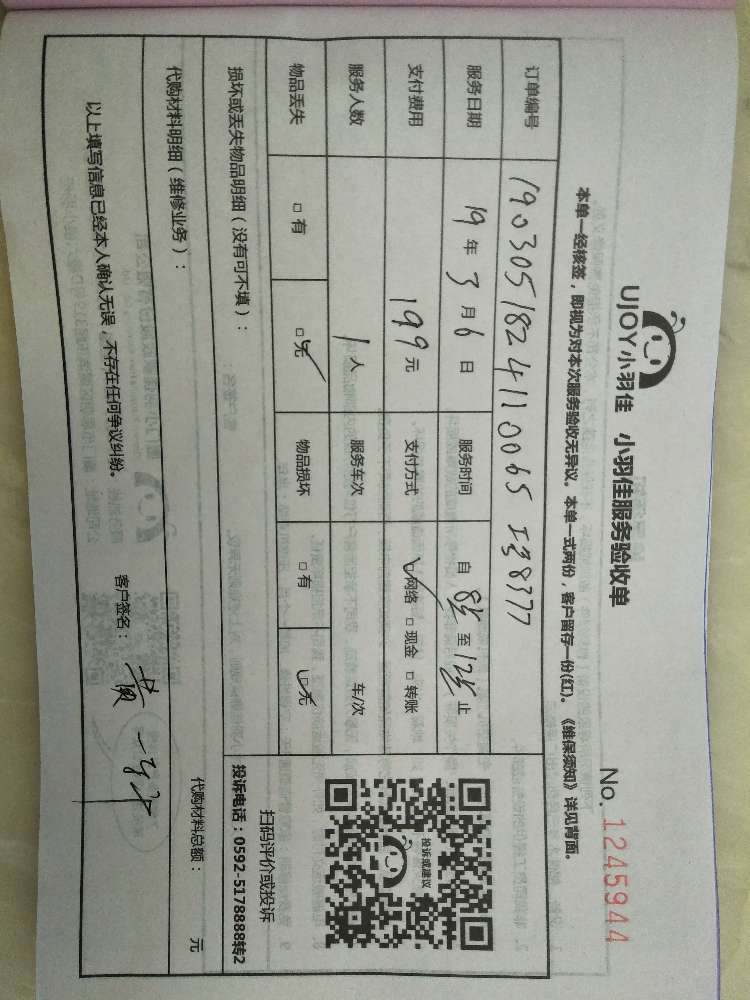 UJOY小羽佳 小羽佳服务验收单
No. 1245944
本单一经核签，即视为对本次服务验收无异议。本单一式两份，客户留存一份(红)。《维保须知》详见背面。
订单编号 190305182411 0065 工号8377
服务日期 19 年 3 月 6 日 服务时间 自 8 至 12 止
支付费用 199 元 支付方式 ☑网络 □ 现金 □ 转账
服务人数 1 人 服务车次 车/次
物品丢失 □ 有 ☑ 无 物品损坏 □ 有 ☑ 无
损坏或丢失物品明细（没有可不填）：
投诉或建议
扫码评价或投诉
投诉电话：0592-5178888转2
代购材料明细（维修业务）： 代购材料总额： 元
以上填写信息已经本人确认无误，不存在任何争议纠纷。 客户签名： 黄